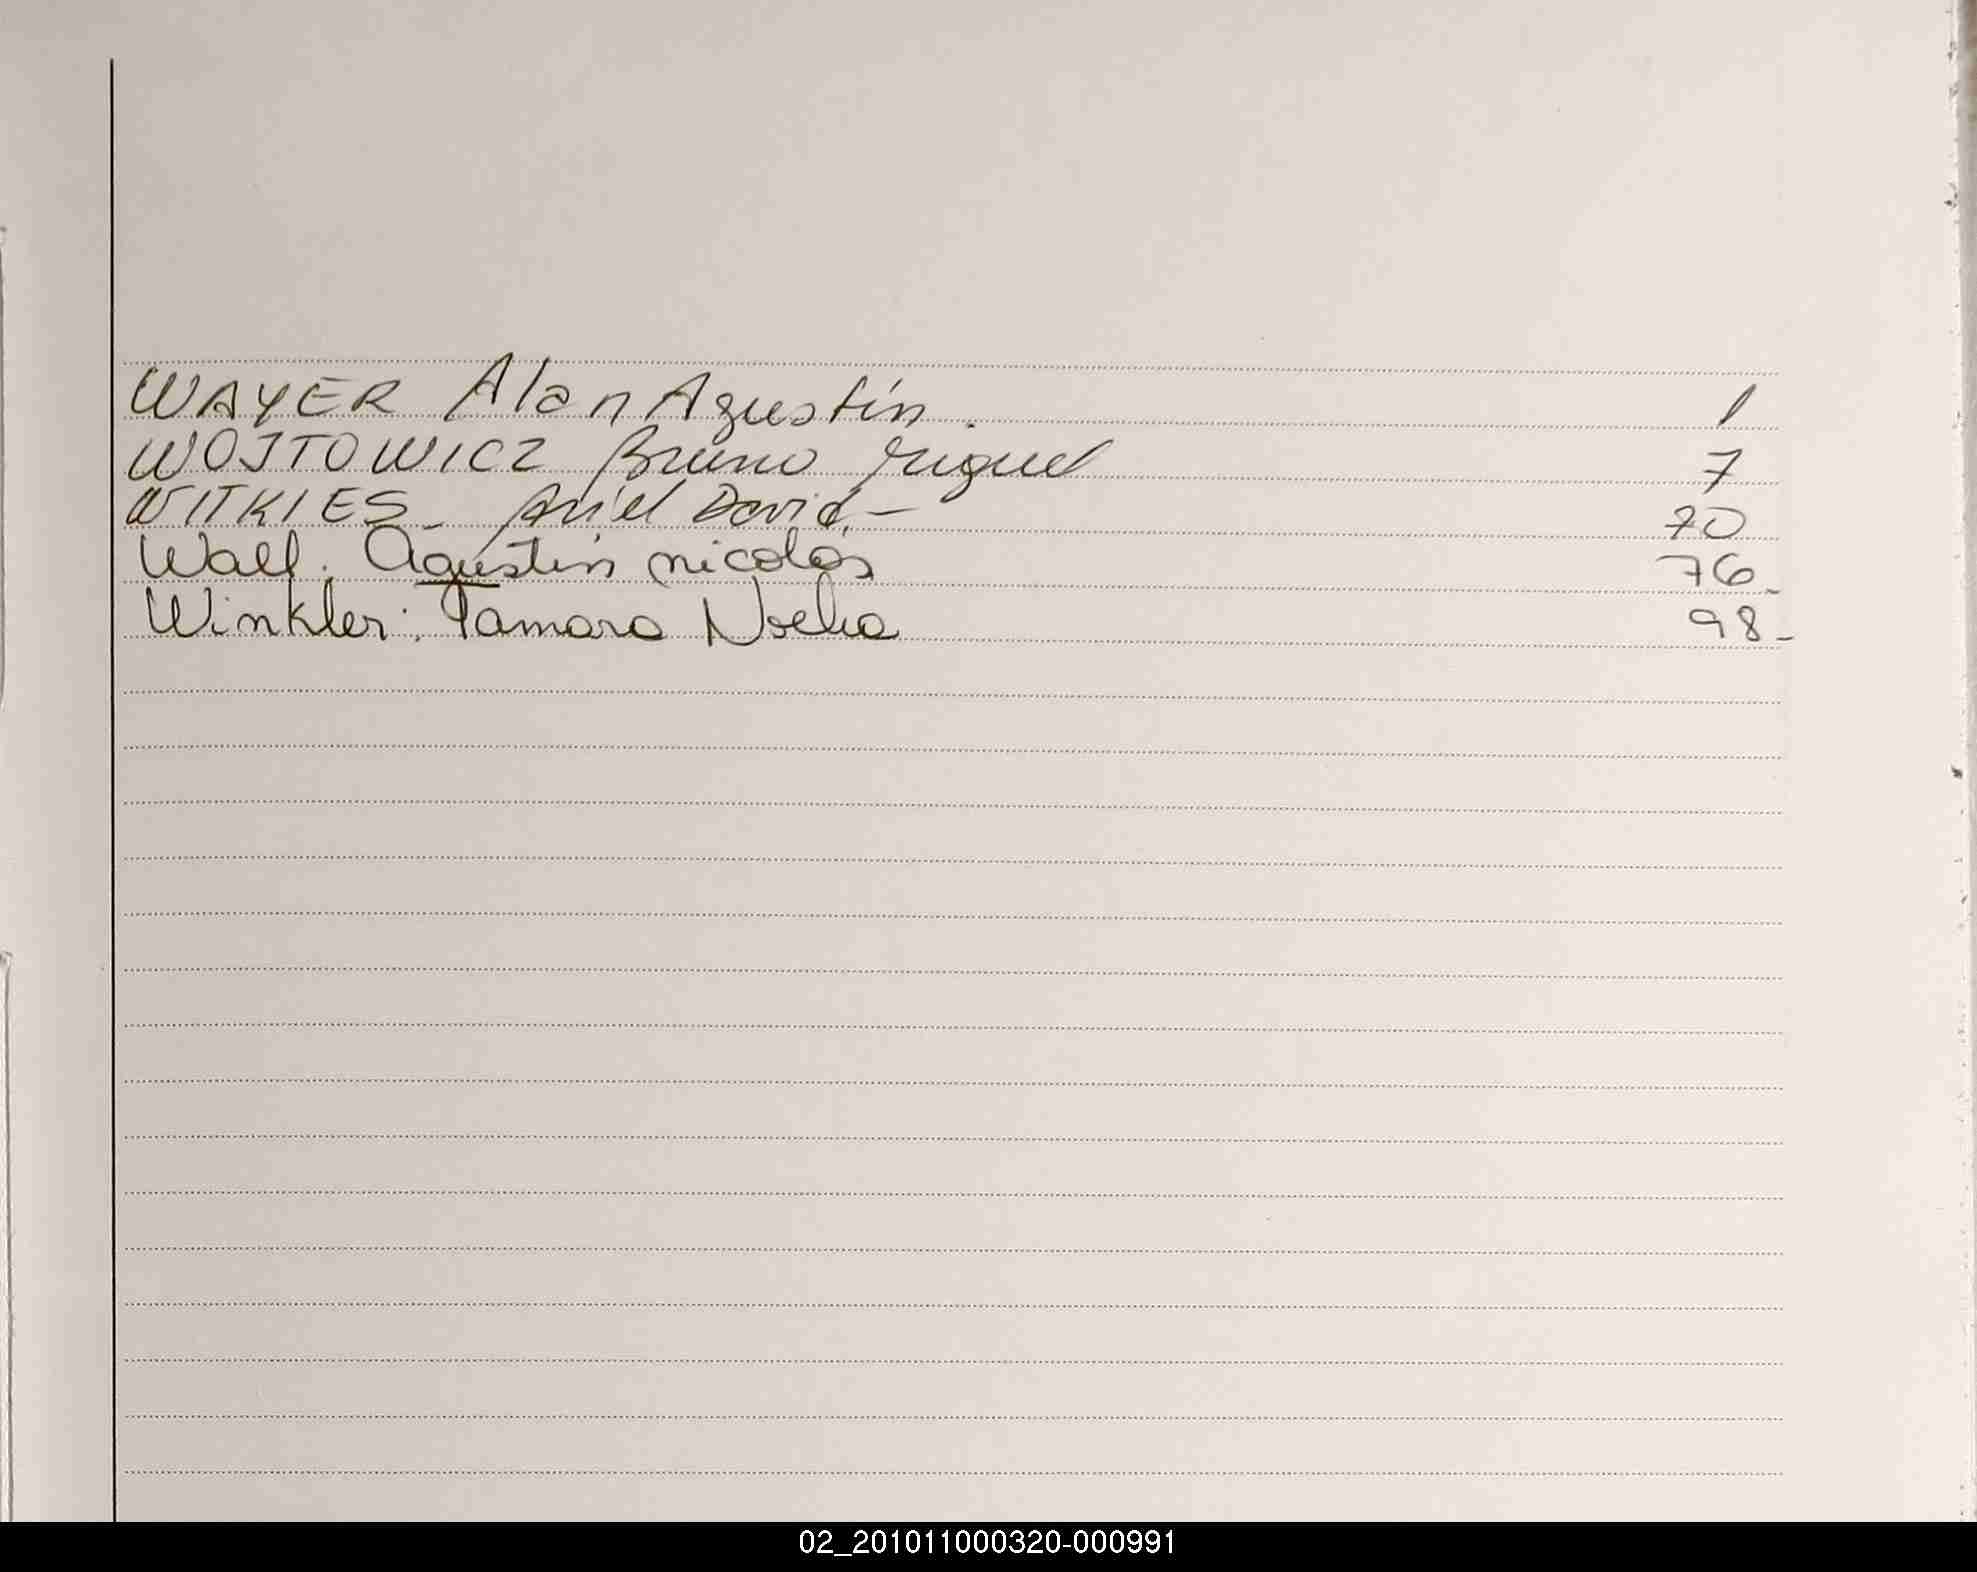 WAYER Alan Agustín. 1
WOJTOWICZ Bruno Miguel 7
WITKIES - Ariel David. - 70
Wall. Agustín nicolás 76-
Winkler: Tamara Noelia 98-
02_201011000320-000991